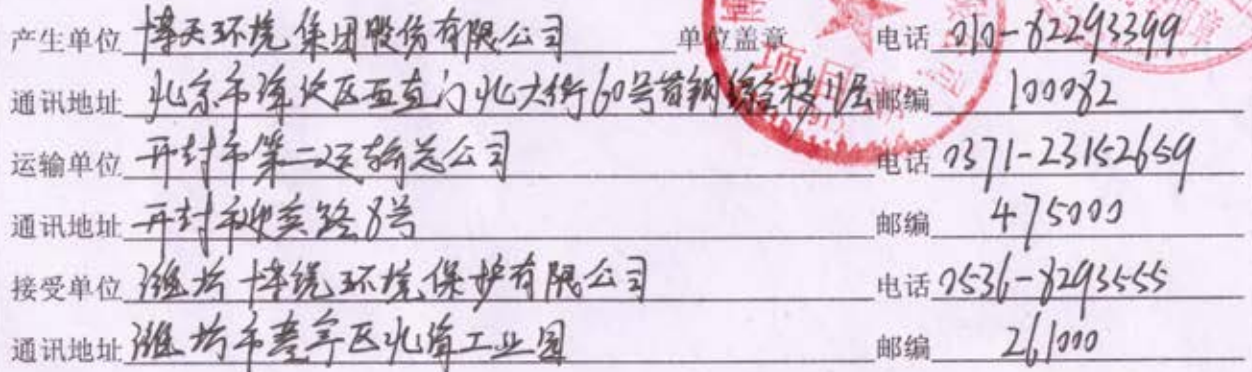 产生单位 博天环境集团股份有限公司 单位盖章 电话 010-82293399
通讯地址 北京市海淀区西直门北大街60号首钢综合楼11层 邮编 100082
运输单位 开封市第二运输总公司 电话 0371-23152659
通讯地址 开封市迎宾路8号 邮编 475000
接受单位 潍坊博锐环境保护有限公司 电话 0536-8293555
通讯地址 潍坊市奎文区北海工业园 邮编 261000